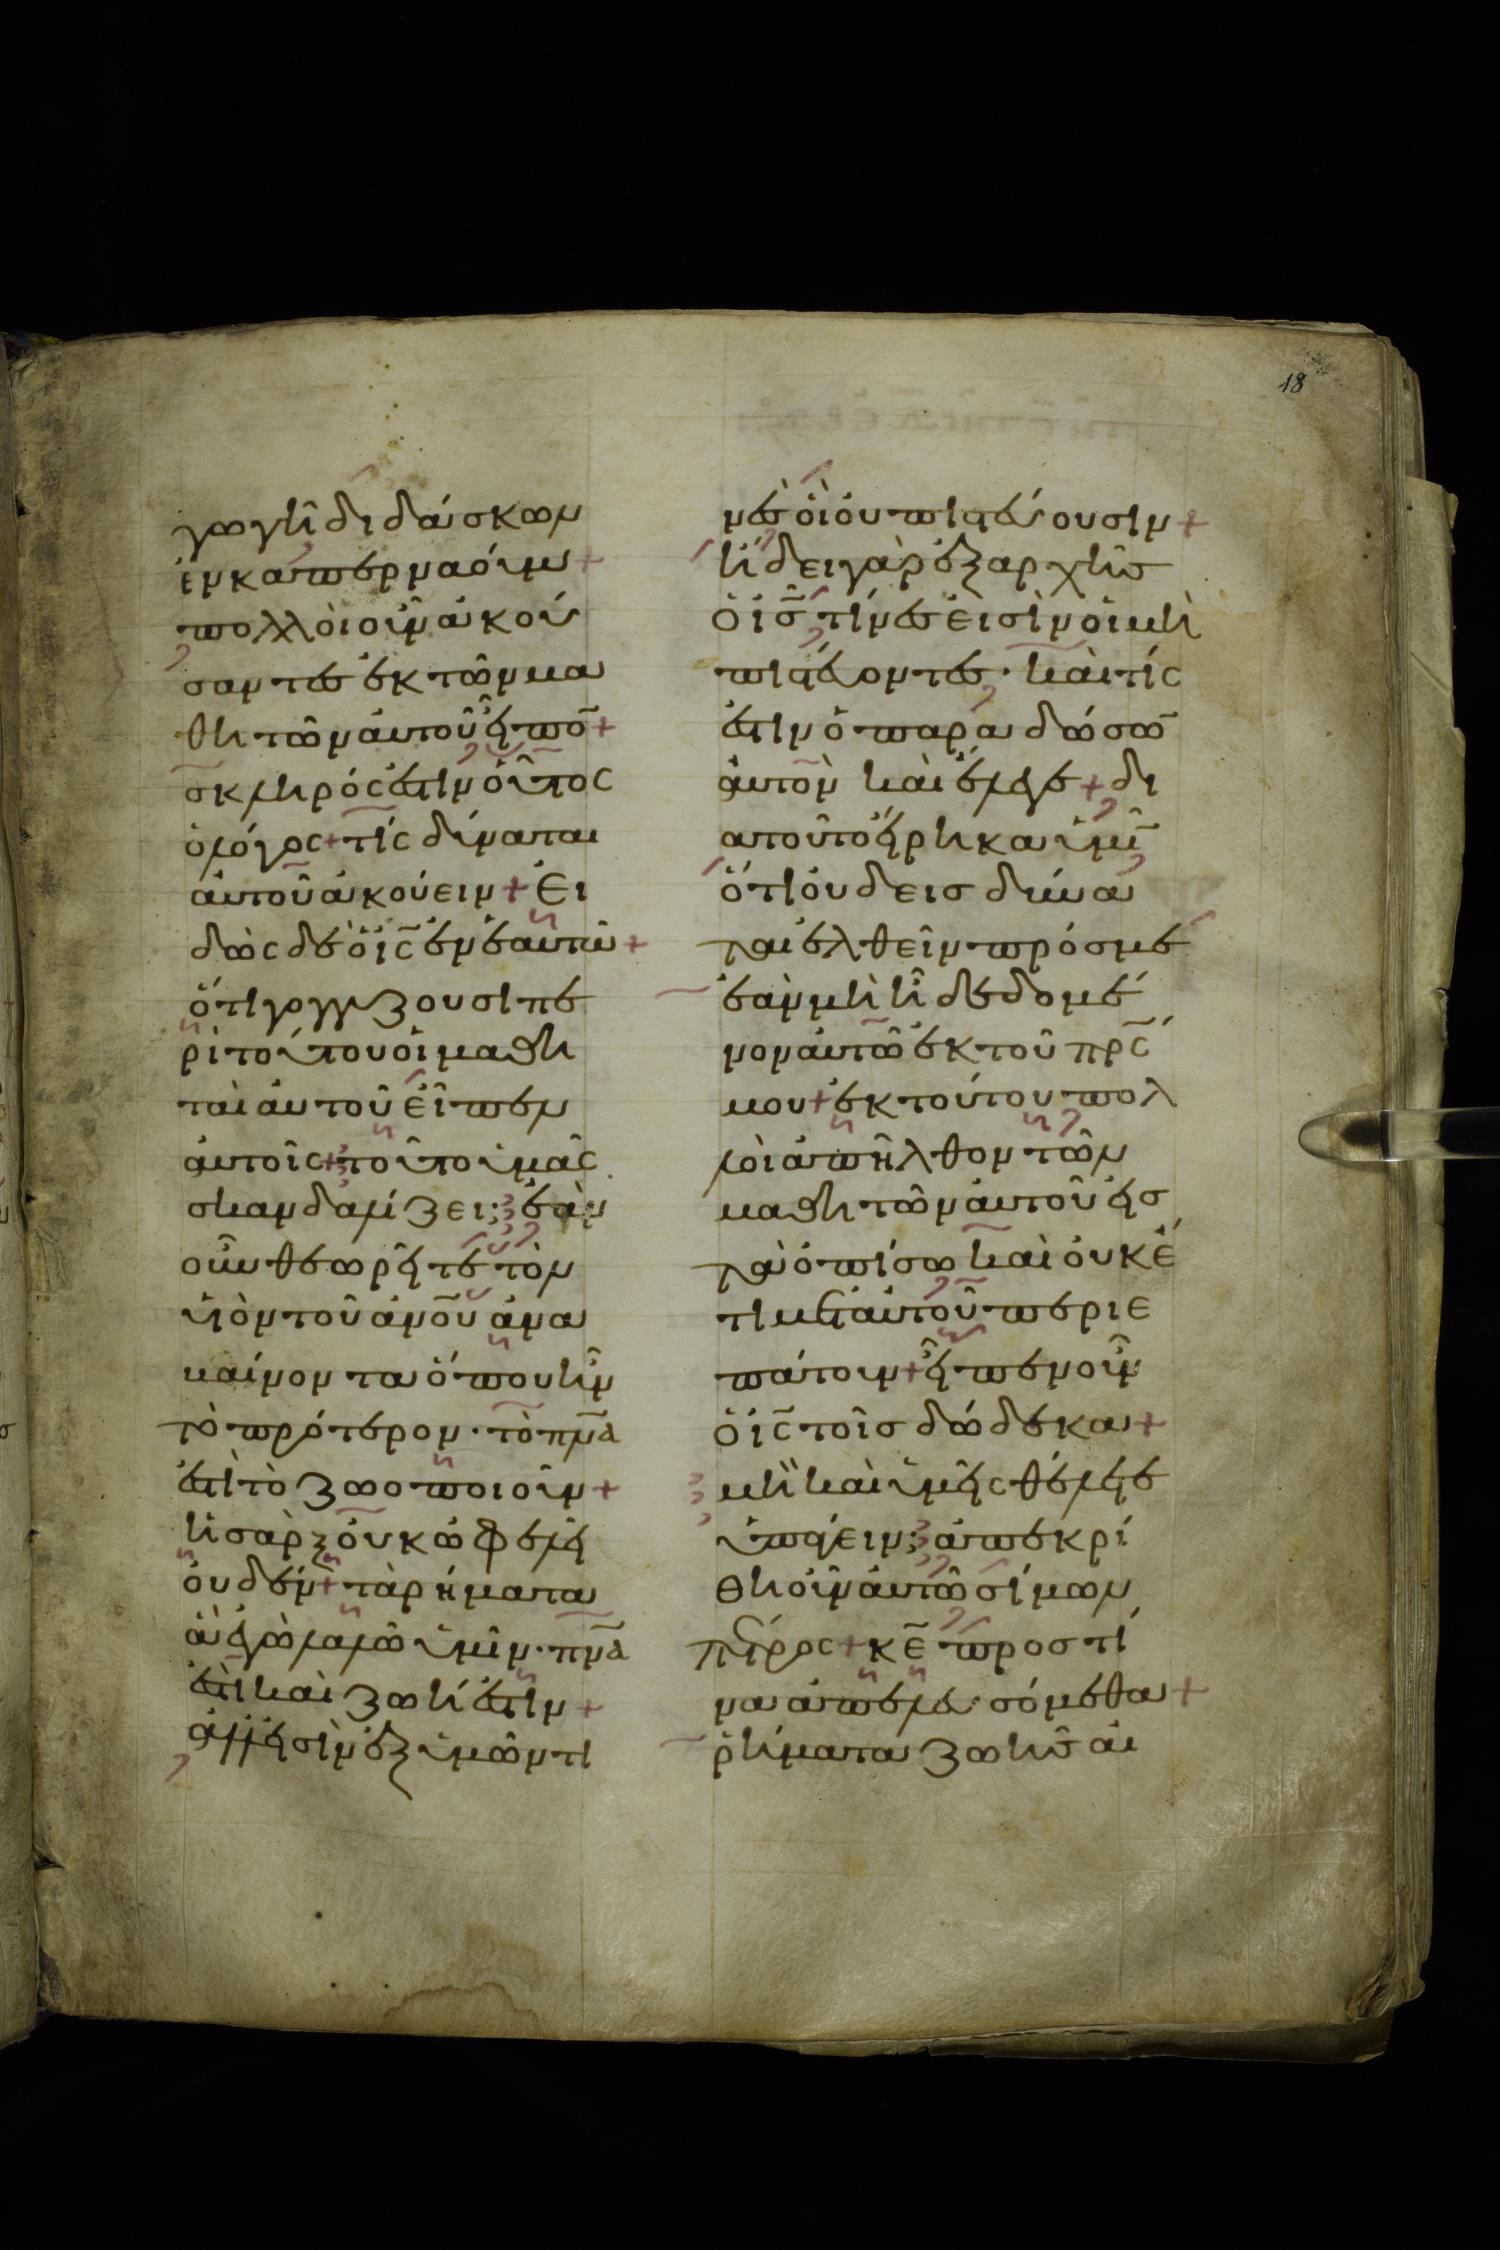 18
γωγῆ διδάσκων
ἐν καπερναούμ +
πολλοὶ οὖν ἀκού
σαντες ἐκ τῶν μα
θητῶν ἀυτοῦ εἶπο̄ +
σκληρός ἐστιν οὗτος
ὁ λόγος + τίς δύναται
ἀυτοῦ ἀκούειν + Ει
δὼς δὲ ὁ ις̄ ἐν ἑαυτῶ +
ὅτι γογγυζουσι πε
ρὶ τούτου οἱ μαθη
ταὶ ἀυτοῦ εἶπεν
ἀυτοῖς + τοῦτο ὑμᾶς
σκανδαλίζει; ἐὰν
οὖν θεωρῆτε τὸν
υἱὸν τοῦ ἀν̄ου ἀνα
βαίνοντα ὅπου ἦν
τὸ πρότερον · τὸ πν̄α
ἐστὶ τὸ ζωοποιοῦν +
ἡ σὰρξ ὀυκ ὠφελεῖ
ὀυδέν + τὰ ρήματα
ἃ ἐγὼ λαλῶ ὑμῖν · πν̄α
ἐστὶ καὶ ζωή ἐστιν +
ἀλλ' εἰσὶν ἐξ ὑμῶν τι
νὲς οἳ ὀυ πιστεύουσιν +
ἤδει γὰρ ἐξ αρχῆς
ὁ ις̄ τίνες ἐισὶν οἱ μὴ
πιστεύοντες · καὶ τίς
ἐστιν ὁ παραδώσω̄
ἀυτὸν καὶ ἔλεγε + δι
α τοῦτο εἴρηκα ὑμῖ̄
ὅτι ὀυδεισ δύνα
ται ἐλθεῖν πρός με
ἐὰν μὴ ῆ δεδομέ
νον ἀυτῶ ἐκ τοῦ πρ̄ς
μου + ἐκ τούτου πολ
λοὶ ἀπῆλθον τῶν
μαθητῶν ἀυτοῦ εἰσ
τὰ ὀπίσω καὶ ὀυκέ
τι μετ ἀυτοῦ περιε
πάτουν + εἶπεν οὖν
ὁ ις̄ τοῖς δώδεκα +
μὴ καὶ ὑμεῖς θέλετε
ὑπάγειν; ἀπεκρί
θη οὖν ἀυτῶ σίμων
πέτρος + κε̄ προς τί
να ἀπελευσόμεθα +
ῥήματα ζωῆς αι